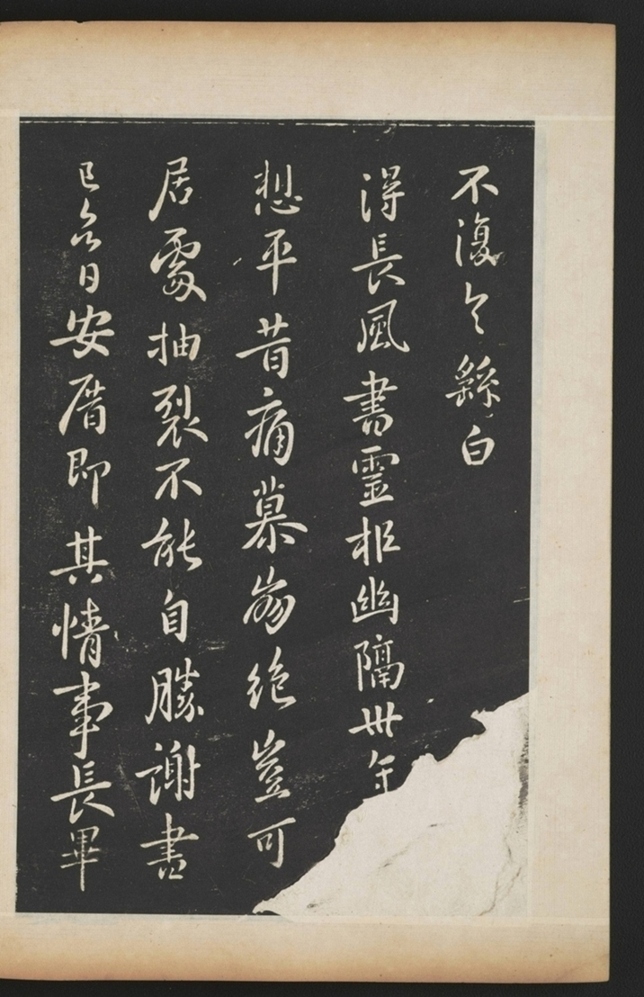 不復繇白
得長風書靈柩幽隔卅年
想平昔痛慕崩絕豈可
居處抽裂不能自勝謝書
已六日安厝即其情事長畢